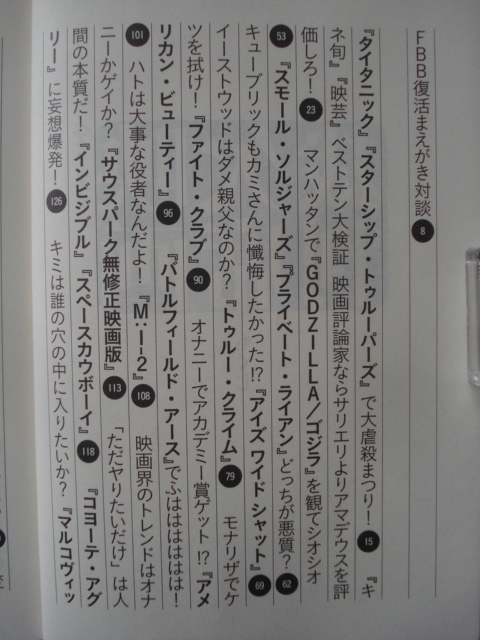 FBB復活まえがき対談 8
『タイタニック』『スターシップ・トゥルーパーズ』で大虐殺まつり！ 15 『キ
ネ旬』『映芸』ベストテン大検証 映画評論家ならサリエリよりアマデウスを評
価しろ！ 23 マンハッタンで『GODZILLA/ゴジラ』を観てシオシオ
53 『スモール・ソルジャーズ』『プライベート・ライアン』どっちが悪質？ 62
キューブリックもカミさんに懺悔したかった!? 『アイズ ワイド シャット』 69
イーストウッドはダメ親父なのか？ 『トゥルー・クライム』 79 モナリザでケ
ツを拭け！ 『ファイト・クラブ』 90 オナニーでアカデミー賞ゲット!? 『アメ
リカン・ビューティー』 96 『バトルフィールド・アース』でふはははははは！
101 ハトは大事な役者なんだよ！ 『M:I-2』 108 映画界のトレンドはオナ
ニーかゲイか？ 『サウスパーク無修正映画版』 113 「ただヤりたいだけ」は人
間の本質だ！ 『インビジブル』『スペースカウボーイ』 118 『コヨーテ・アグ
リー』に妄想爆発！ 126 キミは誰の穴の中に入りたいか？ 『マルコヴィッ